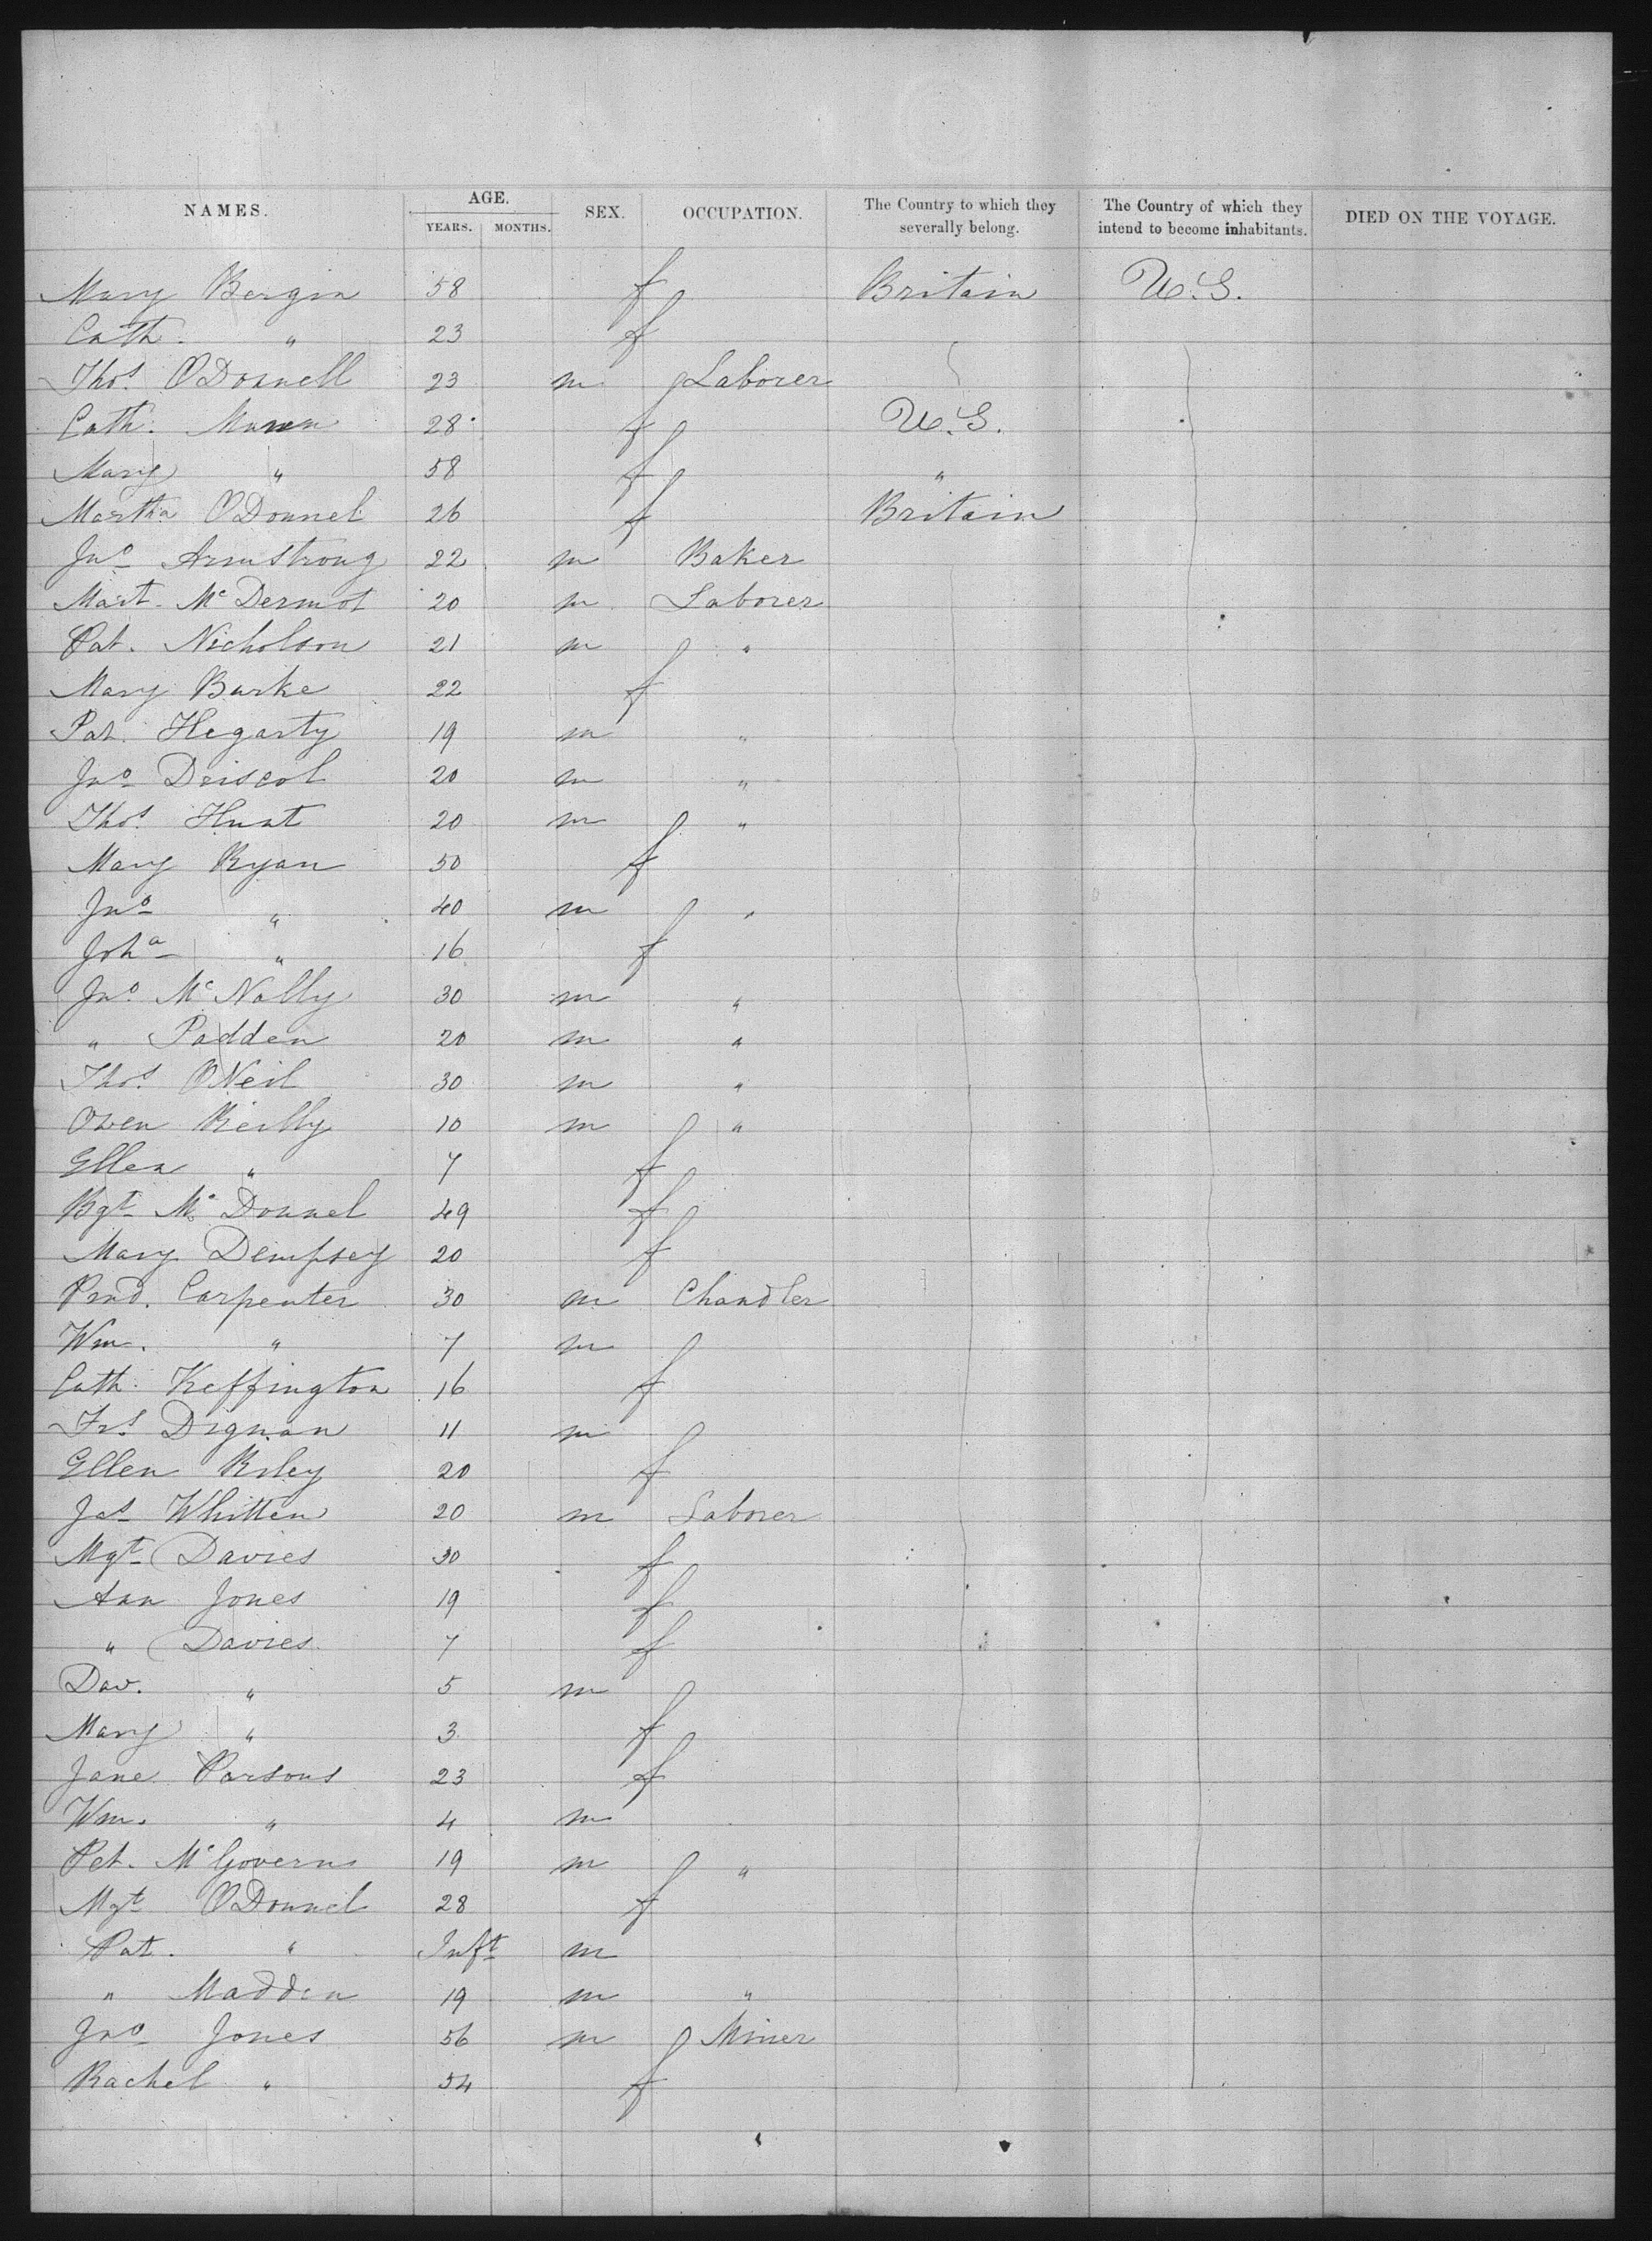 NAMES. AGE. YEARS. MONTHS. SEX. OCCUPATION. The Country to which they severally belong. The Country of which they intend to become inhabitants. DIED ON THE VOYAGE.
Mary Bergin 58 f Britain U.S.
Cath. " 23 f
Thos. ODonnell 23 m Laborer
Cath. 28 f U.S.
Mary " 58 f "
Martha ODonnel 26 f Britain
Jno Armstrong 22 m Baker
Mart. McDermot 20 m Laborer
Pat. Nicholson 21 m "
Mary Burke 22 f
Pat. Hegarty 19 m "
Jno Driscol 20 m "
Thos. Hunt 20 m "
Mary Ryan 50 f
Jno " 40 m "
Joha " 16 f
Jno. McNally 30 m "
" Padden 20 m "
Thos. ONeil 30 m "
Owen Reilly 10 m "
Ellen " 7 f
Bgt. McDonnel 49 f
Mary Dempsey 20 f
Carpenter 30 m Chandler
Wm. " 7 m
Cath. Keffington 16 f
Frs. Dignan 11 m
Ellen Riley 20 f
Jas Whitten 20 m Laborer
Mgt. Davies 30 f
Ann Jones 19 f
" Davies 7 f
Dav. " 5 m
Mary " 3 f
Jane Parsons 23 f
Wm. " 4 m
Pet. McGovern 19 m "
Mgt ODonnel 28 f
Pat. " Inft m
" Madden 19 m "
Jno Jones 56 m Miner
Rachel " 54 f